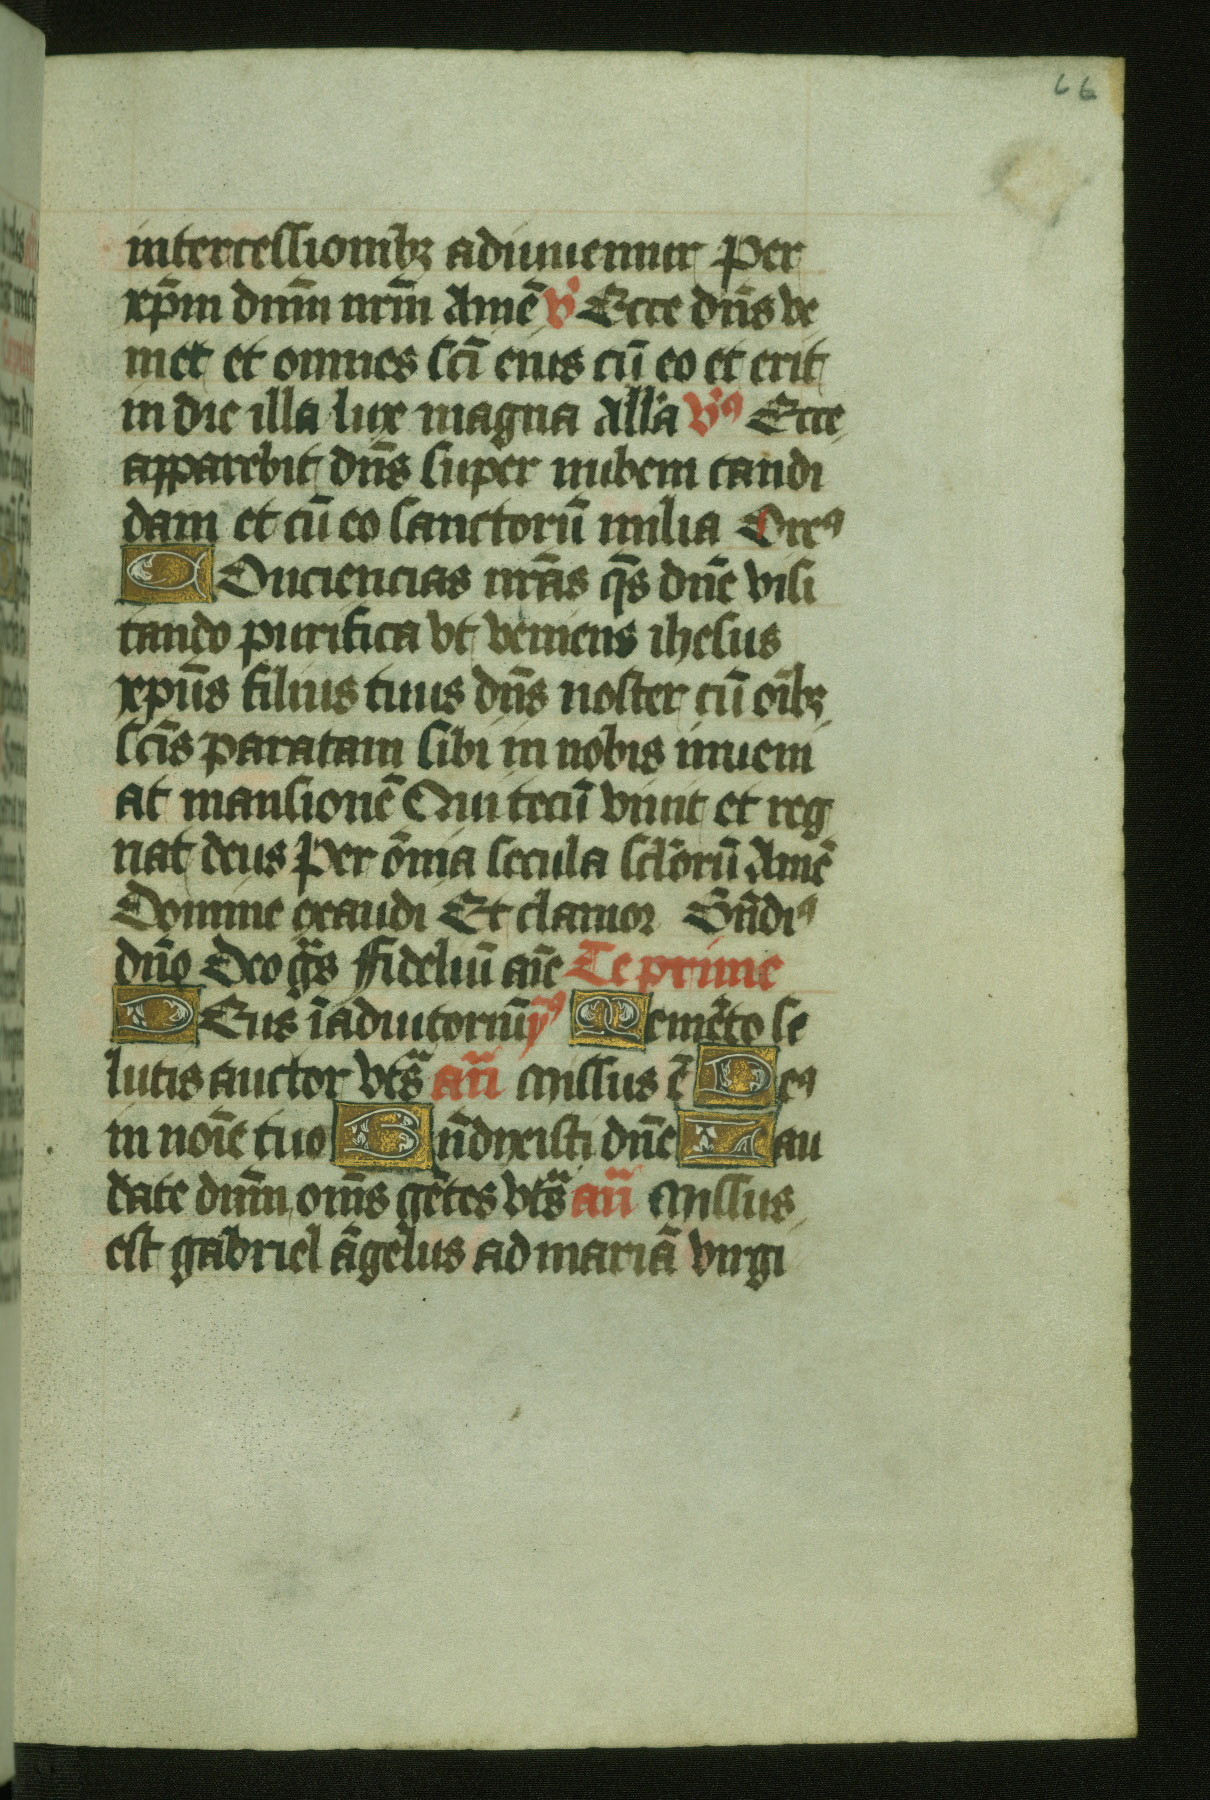 66
intercessionibꝫ adiuuemur Per
xp̄m dn̄m nr̄m Amē v̓ Ecce dn̄s ve
niet et omnes sc̄i eius cū eo et erit
in die illa lux magna all'a v̓ꝰ Ecce
apparebit dn̄s super nubem candi
dam et cū eo sanctorū milia Oreꝰ
COnciencias nr̄as qs̄ dn̄e visi
tando purifica vt veniens ihesus
xpūs filius tuus dn̄s noster cū oībꝫ
sc̄is paratam sibi in nobis inueni
at mansionē Qui tecū viuit et reg
nat deus Per ōmia secula sclōrū Amē
Domine exaudi Et clamor Bn̄diꝰ
dn̄o Deo gr̄s Fideliū aīe Te prime
DEus ī adiutoriūȳꝰ Memēto sa
lutis auctor vts̄ an̄ Missus ē Deꝰ
in noīe tuo Bn̄dixisti dn̄e Lau
date dn̄m om̄s gētes vts̄ an̄ Missus
est gabriel āgelus ad mariā virgi